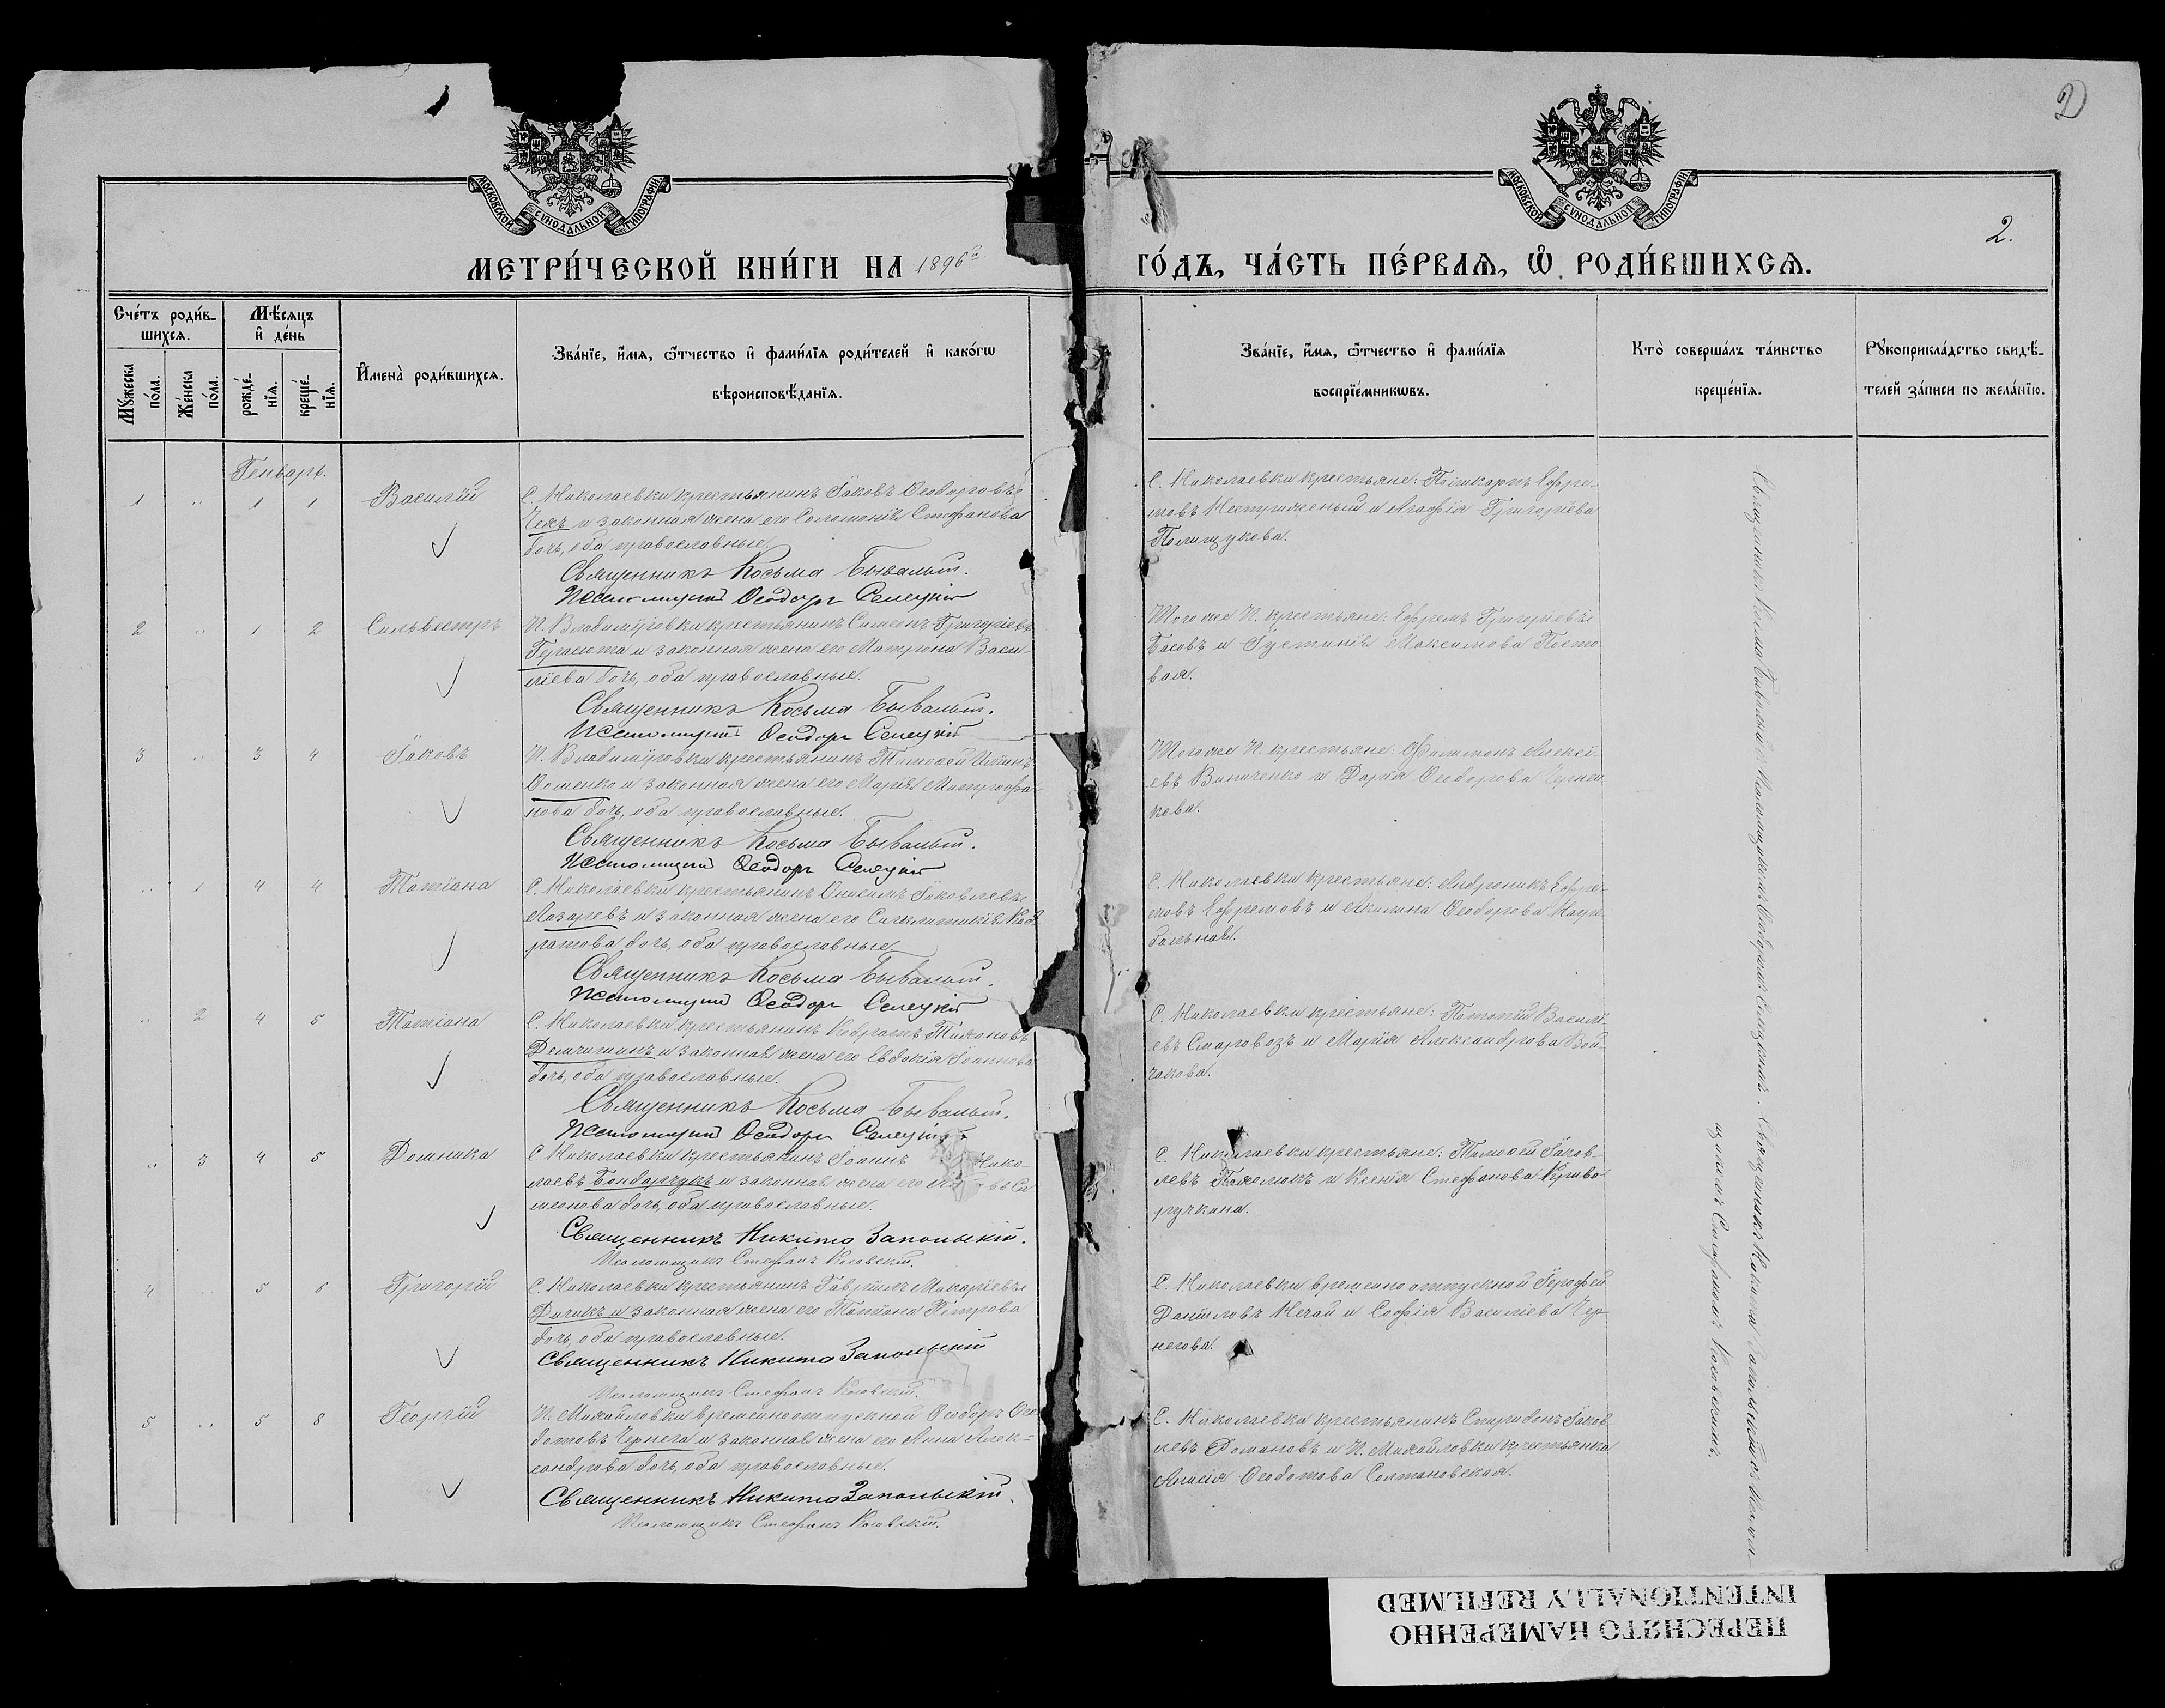 2
МОСКОВСКОЙ СУНОДАЛЬНОЙ ТИПОГРАФІИ
МОСКОВСКОЙ СУНОДАЛЬНОЙ ТИПОГРАФІИ
2.
МЕТРИ́ЧЕСКОЙ КНИ́ГИ НА 1896й
ГО́ДЪ, ЧА́СТЬ ПЕ́РВАѦ, Ѡ РОДИ́ВШИХСѦ.
Сче́тъ роди́в-
шихсѧ.
Мѣ́сѧцъ
и҆ де́нь
Мꙋ́жеска
по́ла.
Же́нска
по́ла.
рожде́-
нїѧ.
креще́-
нїѧ.
И҆мена̀ роди́вшихсѧ.
Зва́нїе, и҆́мѧ, ѻ҆́тчество и҆ фами́лїѧ роди́телей и҆ како́гѡ
вѣроисповѣ́данїѧ.
Зва́нїе, и҆́мѧ, ѻ҆́тчество и҆ фами́лїѧ
воспрїе́мникѡвъ.
Кто̀ соверша́лъ та́инство
креще́нїѧ.
Рꙋкоприкла́дство свидѣ́-
телей за́писи по жела́нїю.
Генварь.
1 .. 1 1 Василій
С. Николаевки крестьянинъ Іаковъ Ѳеодоровъ
Чехъ и законная жена его Соломонія Стефанова
дочь, оба православные.
Священникъ Косьма Бывалый.
Псаломщикъ Ѳеодоръ Селецкій
С. Николаевки крестьяне: Поликарпъ Ефре-
мовъ и Агафія Григоріева
Полищукова.
2 .. 1 2 Сильвестръ
И. Владиміровки крестьянинъ Симеонъ Григоріевъ
Герасюта и законная жена его Матрона Васи-
ліева дочь, оба православные.
Священникъ Косьма Бывалый.
Псаломщикъ Ѳеодоръ Селецкій
Того же И. крестьяне: Ефремъ Григоріевъ
Басовъ и Іустинія Максимова Посто-
вая.
3 .. 3 4 Іаковъ
И. Владиміровки крестьянинъ Тимоѳей Иліинъ
Ѳоменко и законная жена его Марія Митрофа-
нова дочь, оба православные.
Священникъ Косьма Бывалый.
Псаломщикъ Ѳеодоръ Селецкій
Того же И. крестьяне: Филимонъ Алексі-
евъ Виниченко и Дарія Ѳеодорова Черни-
кова.
.. 1 4 4 Татіана
С. Николаевки крестьянинъ Онисимъ Іаковлевъ
Лазаревъ и законная жена его Синклитикія Код-
ратова дочь, оба православные.
Священникъ Косьма Бывалый.
Псаломщикъ Ѳеодоръ Селецкій
С. Николаевки крестьяне: Андроникъ Ефре-
мовъ Ефремовъ и Акилина Ѳеодорова
.. 2 4 5 Татіана
С. Николаевки крестьянинъ Кодратъ Тихоновъ
и законная жена его Евдокія Іоаннова
дочь, оба православные.
Священникъ Косьма Бывалый.
Псаломщикъ Ѳеодоръ Селецкій
С. Николаевки крестьяне: Потапій Василі-
евъ Старовозъ и Марія Александрова Вой-
чакова.
.. 3 4 5 Домника
С. Николаевки крестьянинъ Іоаннъ Нико-
лаевъ Бондарчукъ и законная жена его Си-
меонова дочь, оба православные.
Священникъ Никита Запольскій.
Псаломщикъ Стефанъ Косовскій.
С. Николаевки крестьяне: Тимоѳей Іаков-
левъ и Ксенія Стефанова Криво-
ручкина.
4 .. 5 6 Григорій
С. Николаевки крестьянинъ Гавріилъ Макаріевъ
Дичикъ и законная жена его Татіана Петрова
дочь, оба православные.
Священникъ Никита Запольскій
Псаломщикъ Стефанъ Косовскій.
С. Николаевки временно отпускной Іероѳей
Даніиловъ Нечай и Софія Василіева Чер-
негова.
5 .. 5 8 Георгій
И. Михайловки временно отпускной Ѳеодоръ Ѳео-
дотовъ Чернега и законная жена его Анна Алек-
сандрова дочь, оба православные.
Священникъ Никита Запольскій.
Псаломщикъ Стефанъ Косовскій.
С. Николаевки крестьянинъ Спиридонъ Іаков-
левъ Романовъ и И. Михайловки крестьянка
Ѳеодотова Солтановская.
Священникъ Косьма Бывалый съ псаломщикомъ Ѳеодоромъ Селецкимъ. Священникъ Никита Запольскій съ псалом-
щикомъ Стефаномъ Косовскимъ.
ПЕРЕСНЯТО НАМЕРЕННО
INTENTIONALLY REFILMED